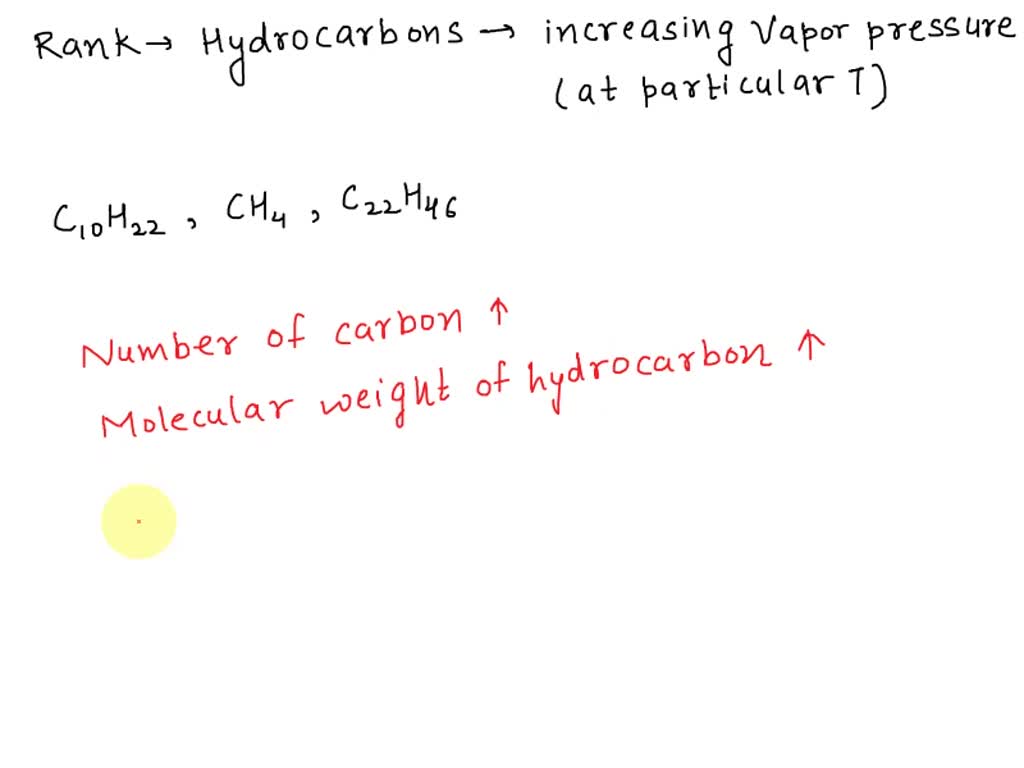 Rank → Hydrocarbons → increasing Vapor pressure
(at particular T)
C₁₀H₂₂ , CH₄ , C₂₂H₄₆
Number of carbon ↑
Molecular weight of hydrocarbon ↑